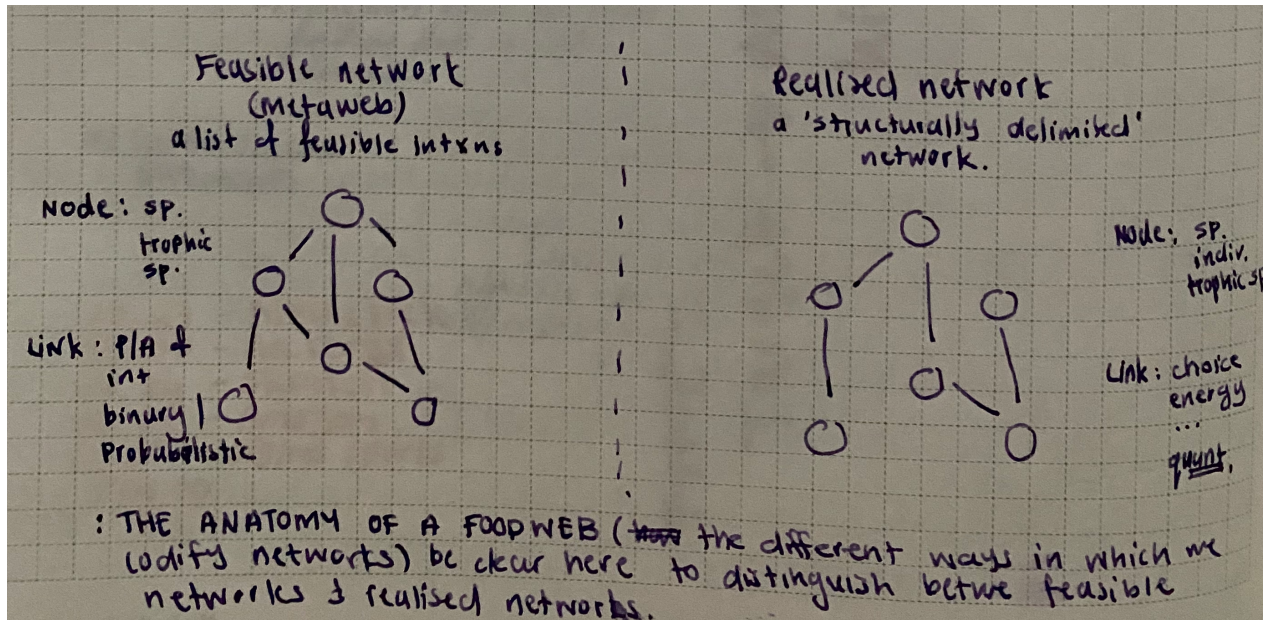 Feasible network
(metaweb)
a list of feasible intxns
Node: sp.
trophic
sp.
Link: P/A of
int
binary |
Probabilistic
Realised network
a 'structurally delimited'
network.
Node: sp.
indiv.
trophic sp
Link: choice
energy
...
quant.
: THE ANATOMY OF A FOODWEB (the different ways in which we
codify networks) be clear here to distinguish betwe feasible
networks & realised networks.